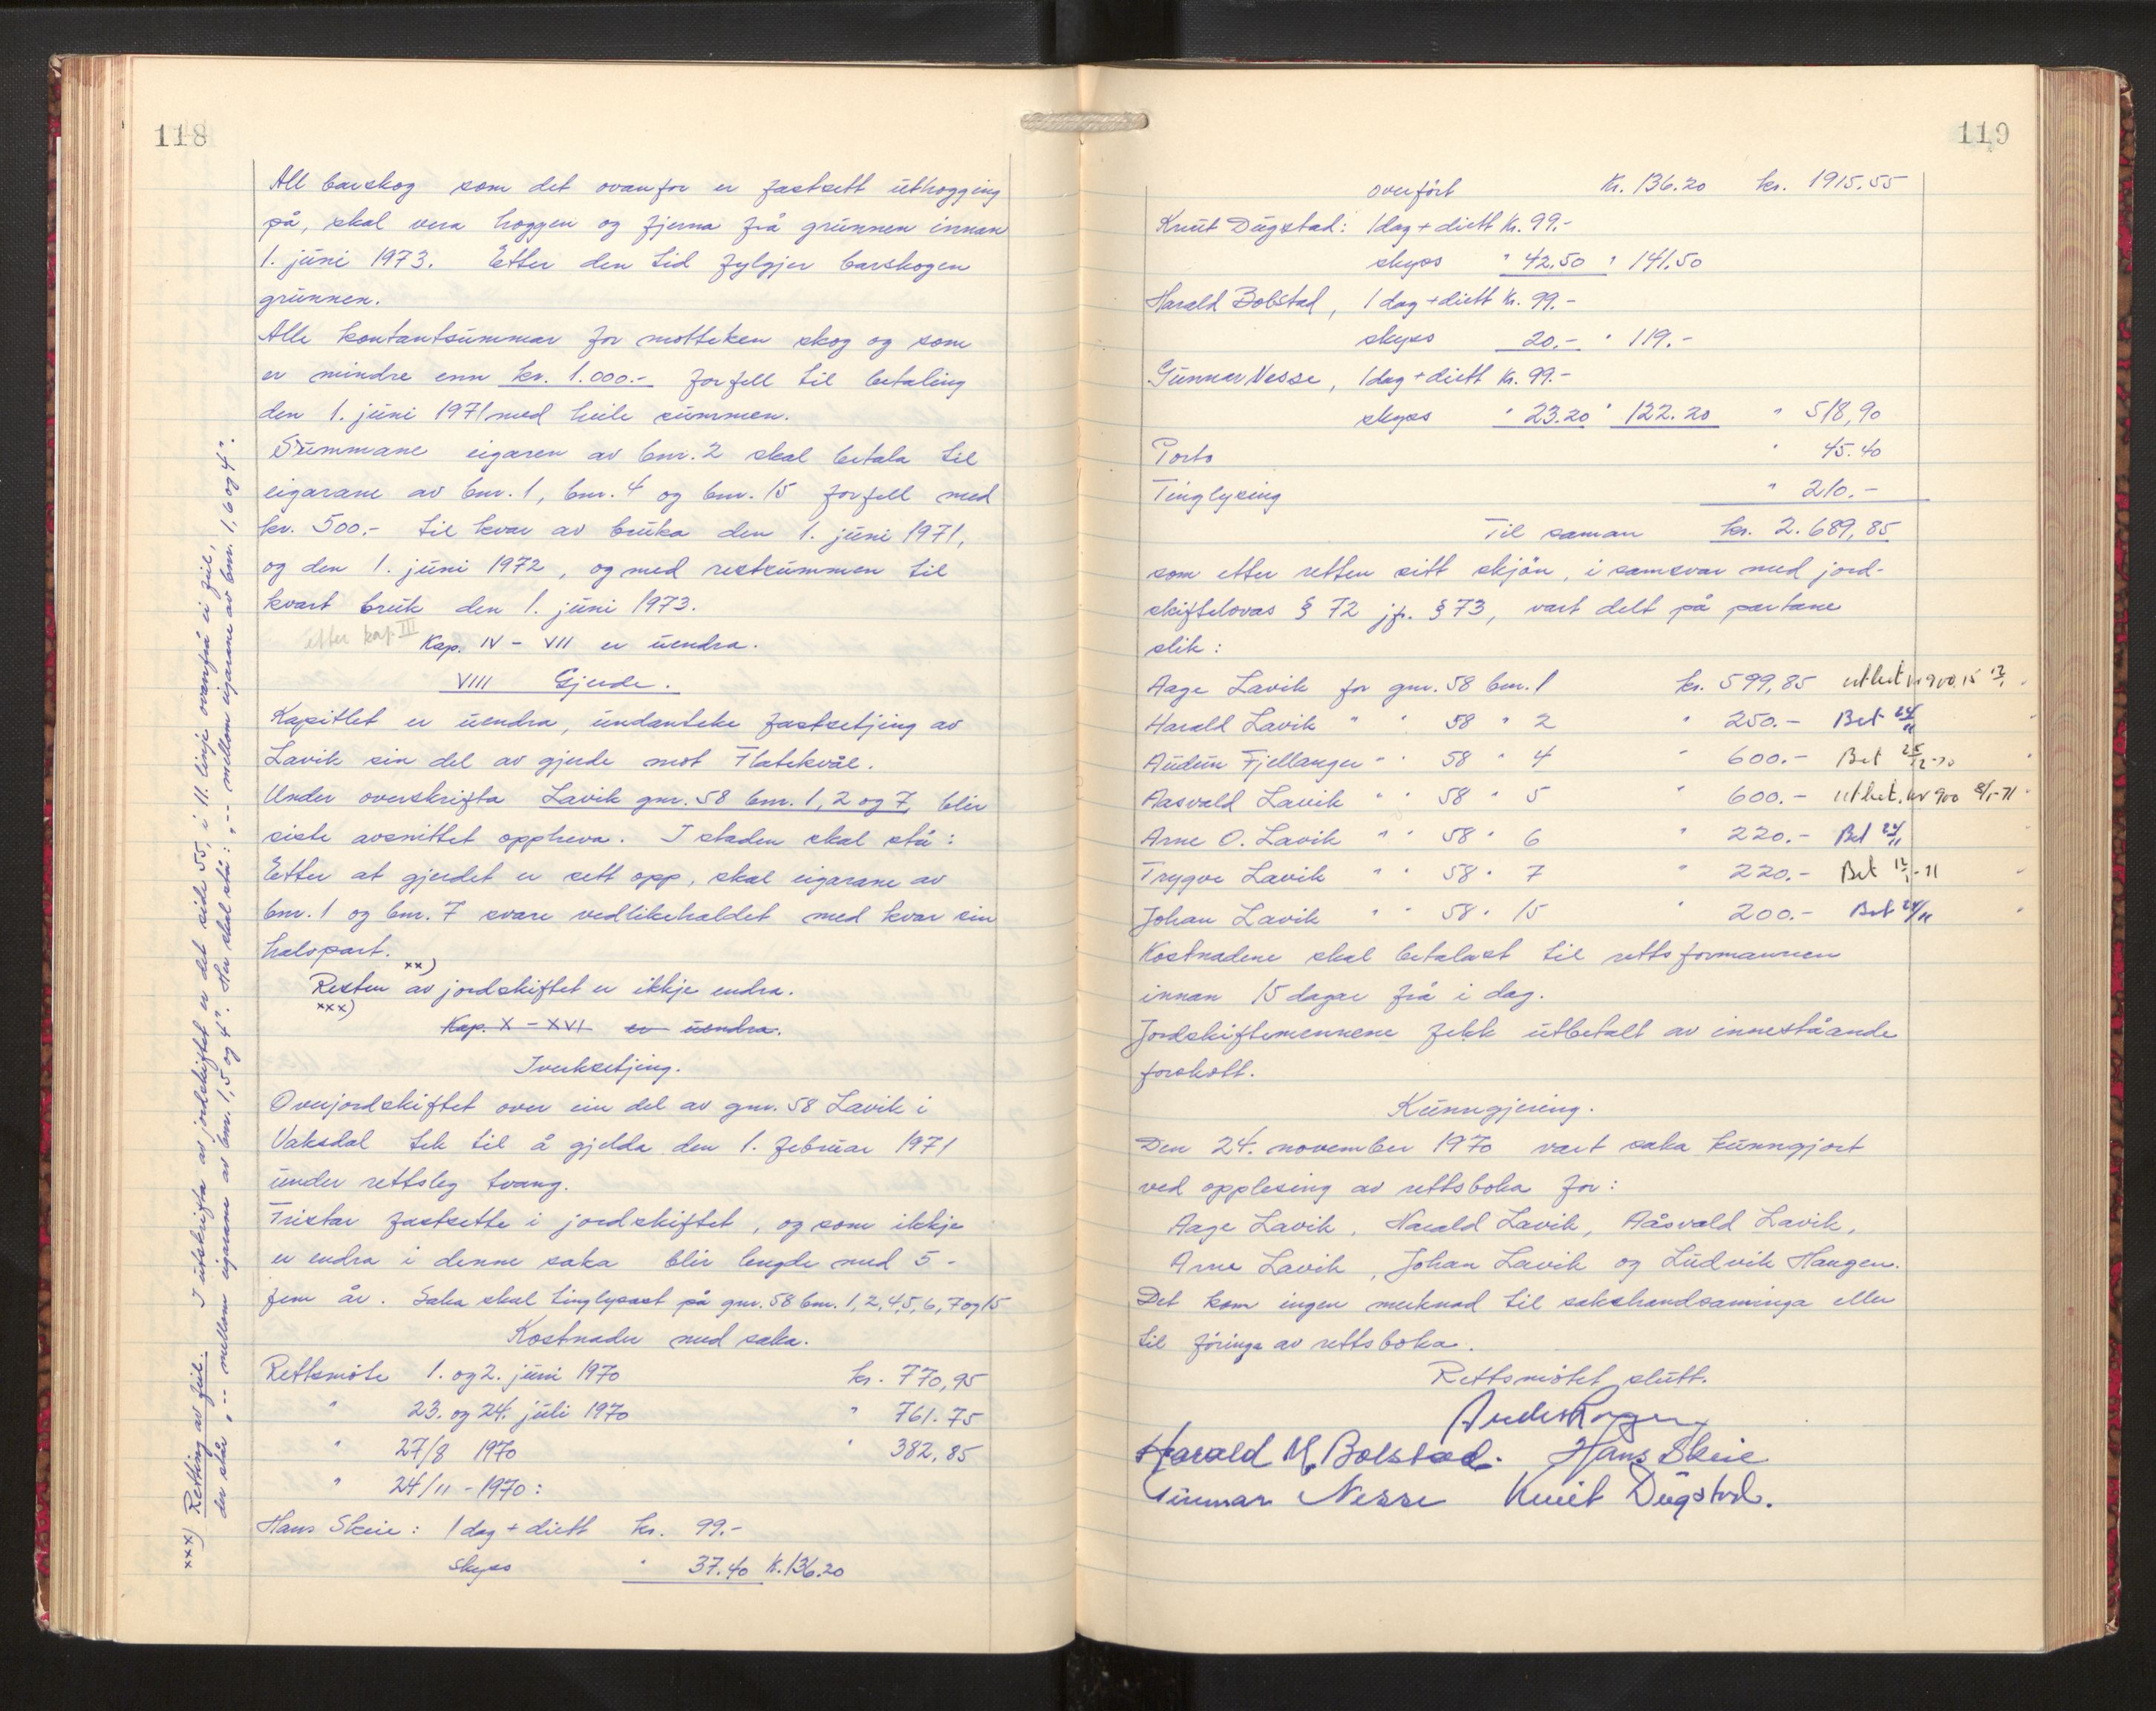 118
All barskog som det ovanfor er fastsett uthogging
på, skal vera hoggen og fjerna frå grunnen innan
1. juni 1973. Etter den tid fylgjer barskogen
grunnen.
Alle kontantsummar for motteken skog og som
er mindre enn kr. 1.000.- forfell til betaling
den 1. juni 1971 med heile summen.
Summane eigaren av bnr. 2 skal betala til
eigarane av bnr. 1, bnr. 4 og bnr. 15 forfell med
kr. 500.- til kvar av bruka den 1. juni 1971,
og den 1. juni 1972, og med restsummen til
kvart bruk den 1. juni 1973.
etter kap. III
Kap. IV - VII er uendra.
VIII Gjerde.
Kapitlet er uendra, undanteke fastsetjing av
Lavik sin del av gjerde mot Flatekvål.
Under overskrifta Lavik gnr. 58 bnr. 1, 2 og 7, blir
siste avsnittet oppheva. I staden skal stå:
Etter at gjerdet er sett opp, skal eigarane av
bnr. 1 og bnr. 7 svare vedlikehaldet med kvar sin
halvpart.
xx)
Resten av jordskiftet er ikkje endra.
xxx)
Kap. X - XVI er uendra.
Iverksetjing.
Overjordskiftet over ein del av gnr. 58 Lavik i
Vaksdal tek til å gjelda den 1. februar 1971
under rettsleg tvang.
Fristar fastsette i jordskiftet, og som ikkje
er endra i denne saka blir lengde med 5 -
fem år. Saka skal tinglysast på gnr. 58 bnr. 1, 2, 4, 5, 6, 7 og 15
Kostnader med saka.
Rettsmöte 1. og 2. juni 1970 kr. 770,95
" 23. og 24. juli 1970 " 761.75
" 27/8 1970 " 382,85
" 24/11 - 1970:
Hans Skeie: 1 dag + diett kr. 99.-
skyss " 37.40 kr. 136.20
xxx) Retting av feil. I utskrifta av jordskiftet er det side 55, i 11. linje ovanfrå ei feil,
der står "-- mellom eigarane av bnr. 1, 5 og 4". Her skal stå: "-- mellom eigarane av bnr. 1, 6 og 4".
119
overfört kr. 136.20 kr. 1915.55
Knut Dugstad: 1 dag + diett kr. 99.-
skyss " 42.50 " 141.50
Harald Bolstad, 1 dag + diett kr. 99.-
skyss 20.- " 119.-
Gunnar Nesse, 1 dag + diett kr. 99.-
skyss " 23.20 " 122.20 " 518,90
Porto " 45.40
Tinglysing " 210.-
Til saman kr. 2.689,85
som etter retten sitt skjön, i samsvar med jord-
skiftelovas § 72 jfr. § 73, vart delt på partane
slik:
Aage Lavik for gnr. 58 bnr. 1 kr. 599,85 utbet kr 900.15 12/1
Harald Lavik " " 58 " 2 " 250.- Bet 24/11
Audun Fjellanger " " 58 " 4 " 600.- Bet 25/12-70
Aasvald Lavik " " 58 " 5 " 600.- utbet. kr 900 8/1-71
Arne O. Lavik " " 58 " 6 " 220.- Bet 24/11
Trygve Lavik " " 58 " 7 " 220.- Bet 12/1-71
Johan Lavik " " 58 " 15 " 200.- Bet 24/11
Kostnadene skal betalast til rettsformannen
innan 15 dagar frå i dag.
Jordskiftemennene fekk utbetalt av inneståande
forskott.
Kunngjering.
Den 24. november 1970 vart saka kunngjort
ved opplesing av rettsboka for:
Aage Lavik, Harald Lavik, Aåsvald Lavik,
Arne Lavik, Johan Lavik og Ludvik Haugen.
Det kom ingen merknad til sakshandsaminga eller
til föringa av rettsboka.
Rettsmötet slutt.
Harald M. Bolstad. Hans Skeie
Gunnar Nesse Knut Dugstad.